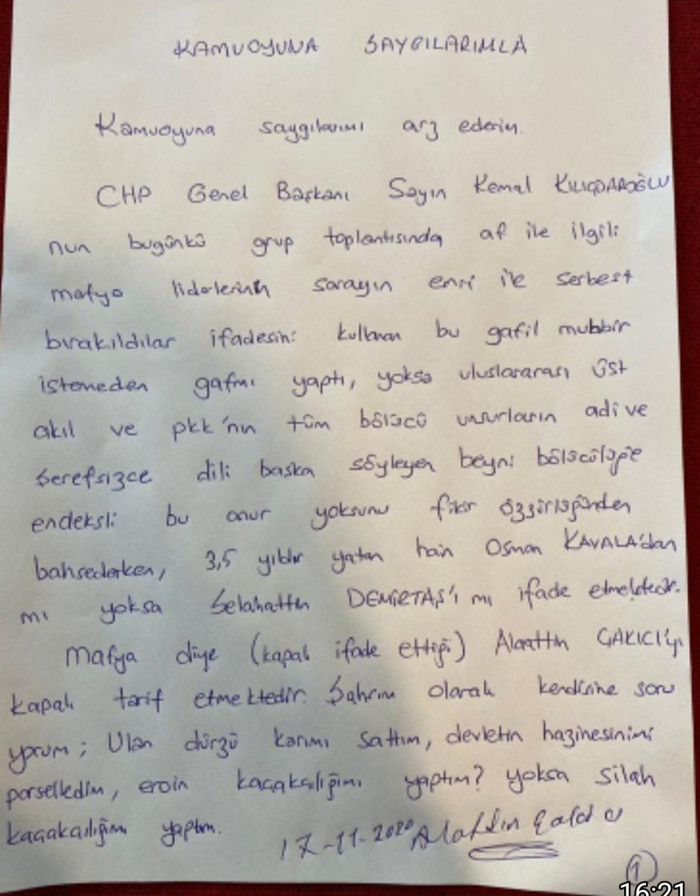 KAMUOYUNA SAYGILARIMLA
Kamuoyuna saygılarımı arz ederim.
CHP Genel Başkanı Sayın Kemal KILIÇDAROĞLU
nun bugünkü grup toplantısında af ile ilgili
mafya liderlerinin sarayın emri ile serbest
bırakıldılar ifadesini kullanan bu gafil muhbir
istemeden gafını yaptı, yoksa uluslararası üst
akıl ve pkk'nın tüm bölücü unsurların adi ve
şerefsizce dili başka söyleyen beyni bölücülüğe
endeksli bu onur yoksunu fikir özgürlüğünden
bahsederken, 3,5 yıldır yatan hain Osman KAVALA'dan
mı yoksa Selahattin DEMİRTAŞ'ı mı ifade etmektedir.
Mafya diye (kapalı ifade ettiği) Alaattin ÇAKICI'yı
kapalı tarif etmektedir. Şahsım olarak kendisine soru
yorum; Ulan dürzü karımı sattım, devletin hazinesinimi
parselledim, eroin kaçakçılığımı yaptım? yoksa silah
kaçakçılığımı yaptım.
17-11-2020 Alattin Çakıcı
1
16:21